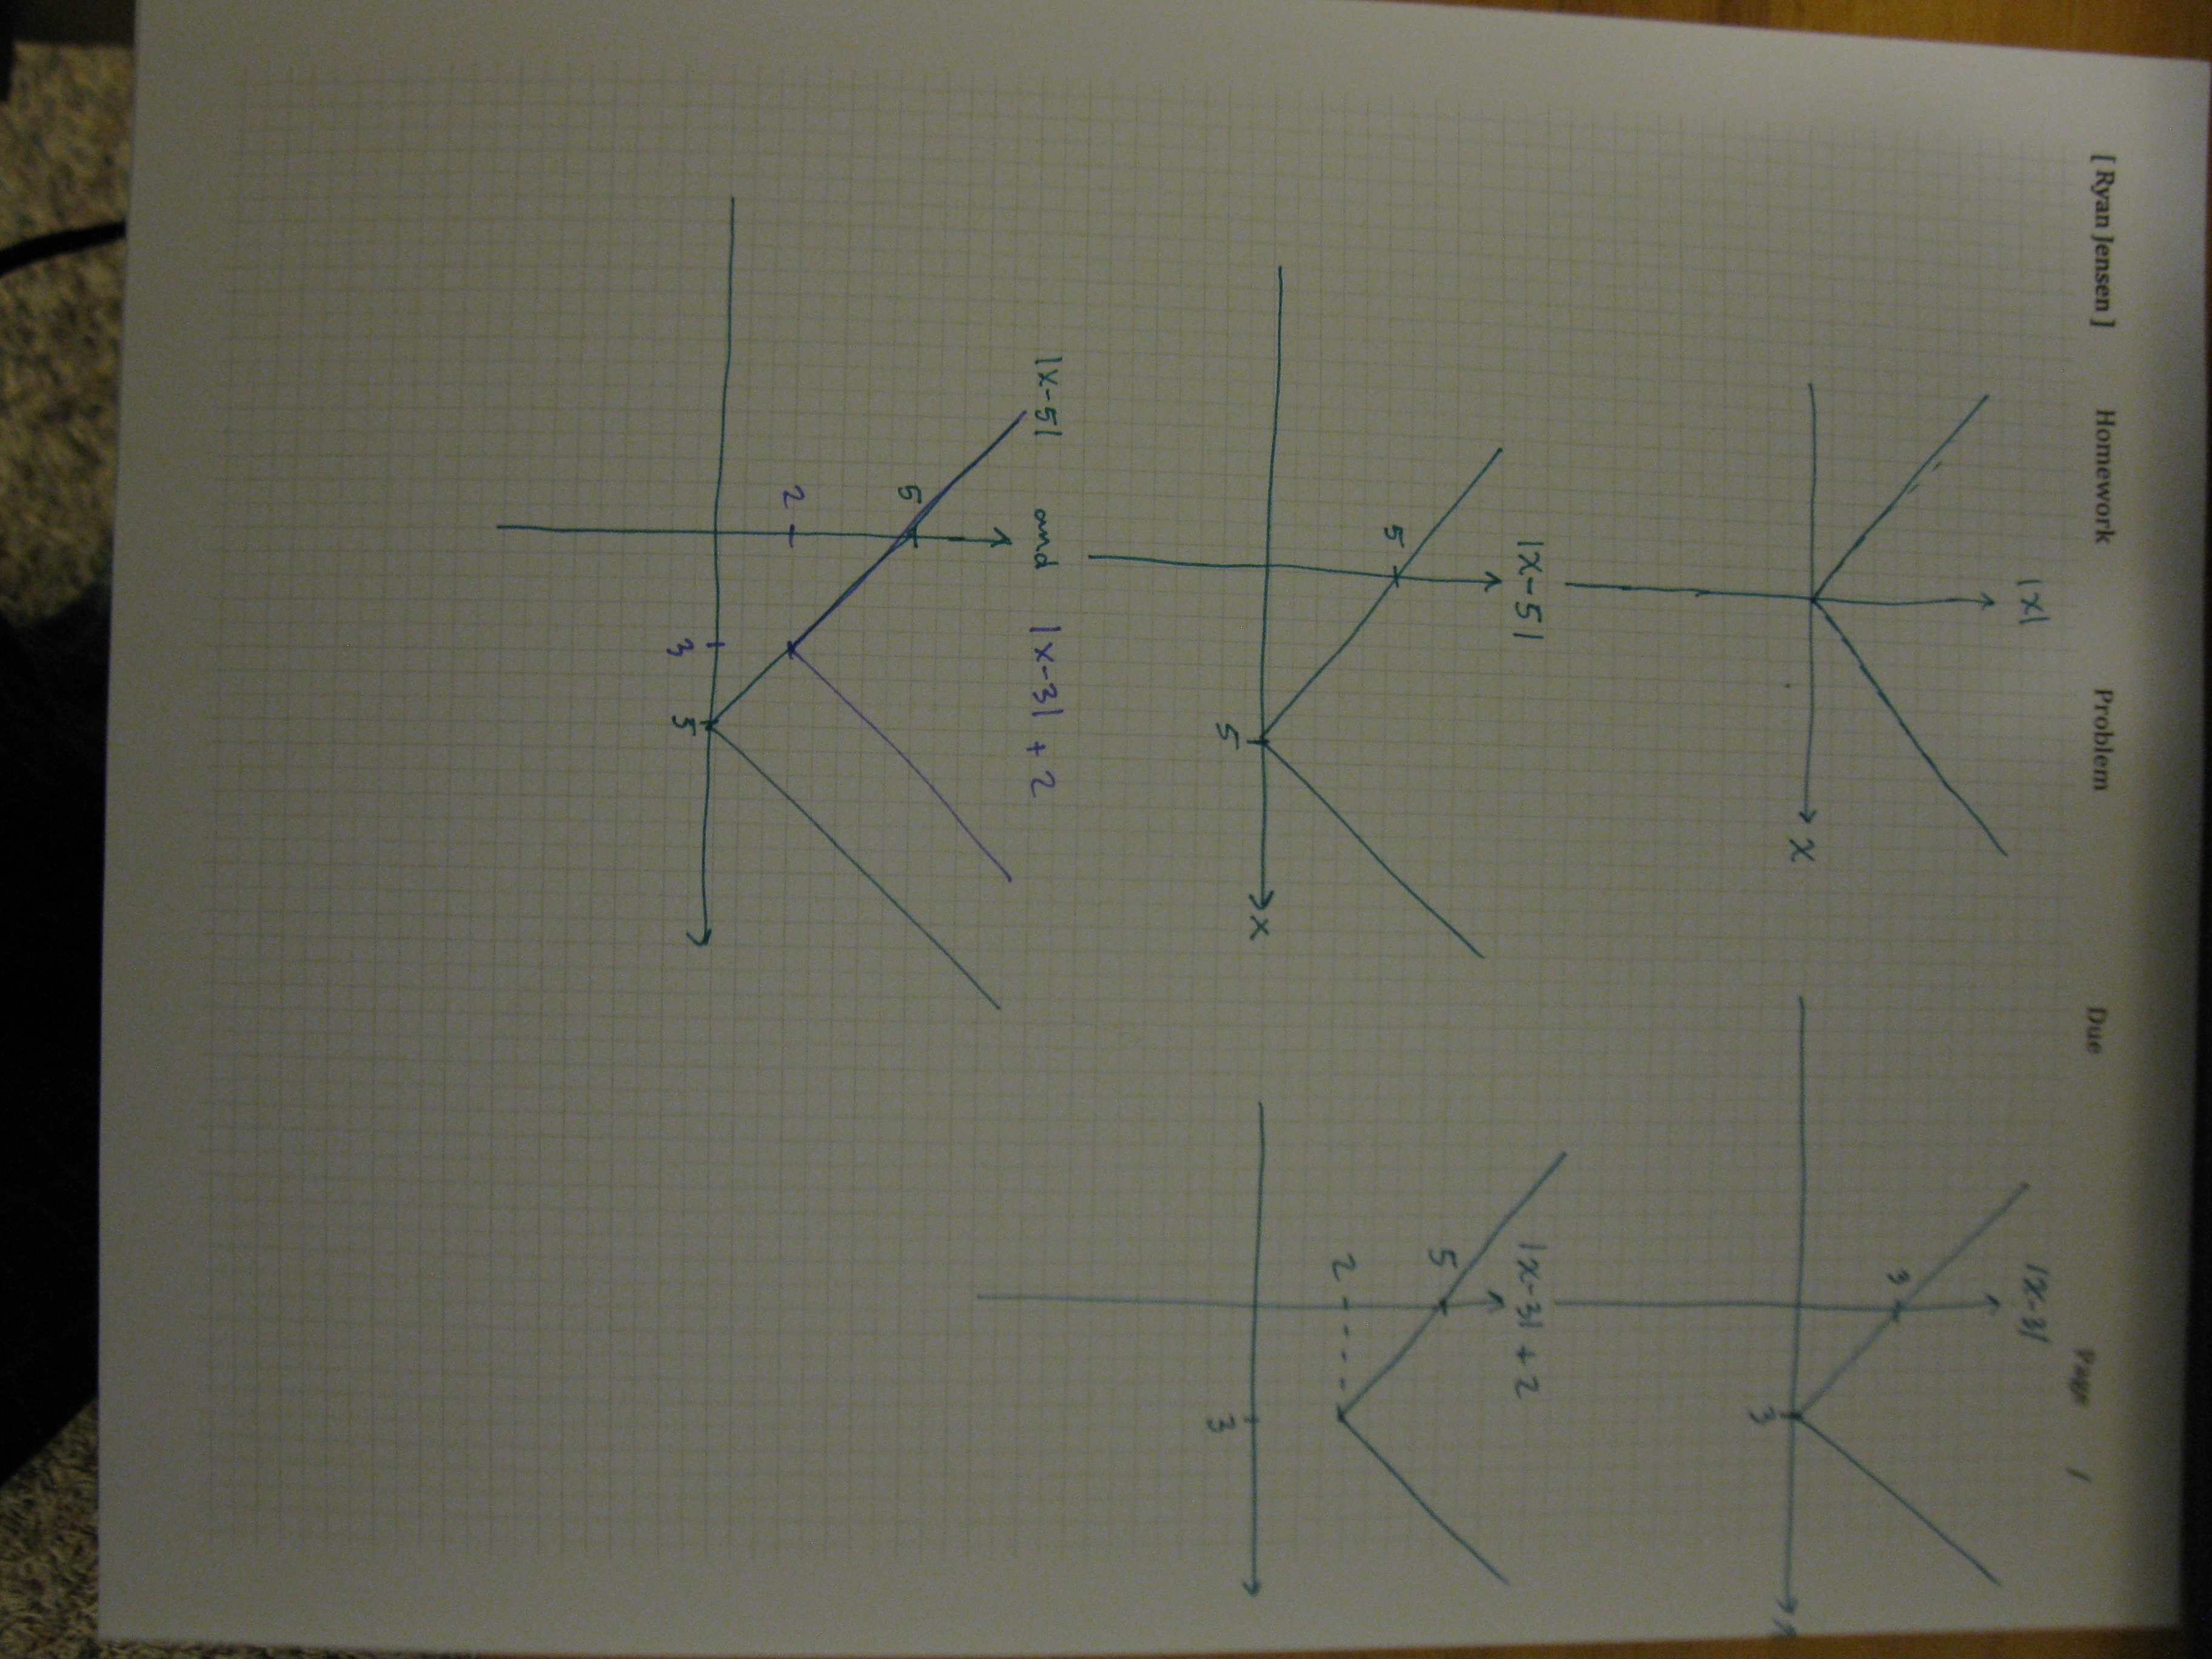 [ Ryan Jensen ] Homework Problem Due Page 1
|x| |x-3|
3
x
3
|x-5| |x-3| + 2
5
5
2
x
5
3
|x-5| and |x-3| + 2
5
2
3 5